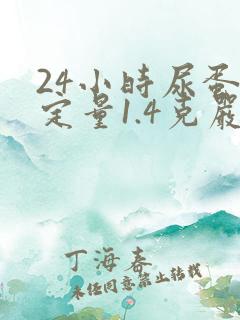 24小时尿蛋
定量1.4克严
丁海春
未经同意禁止转载